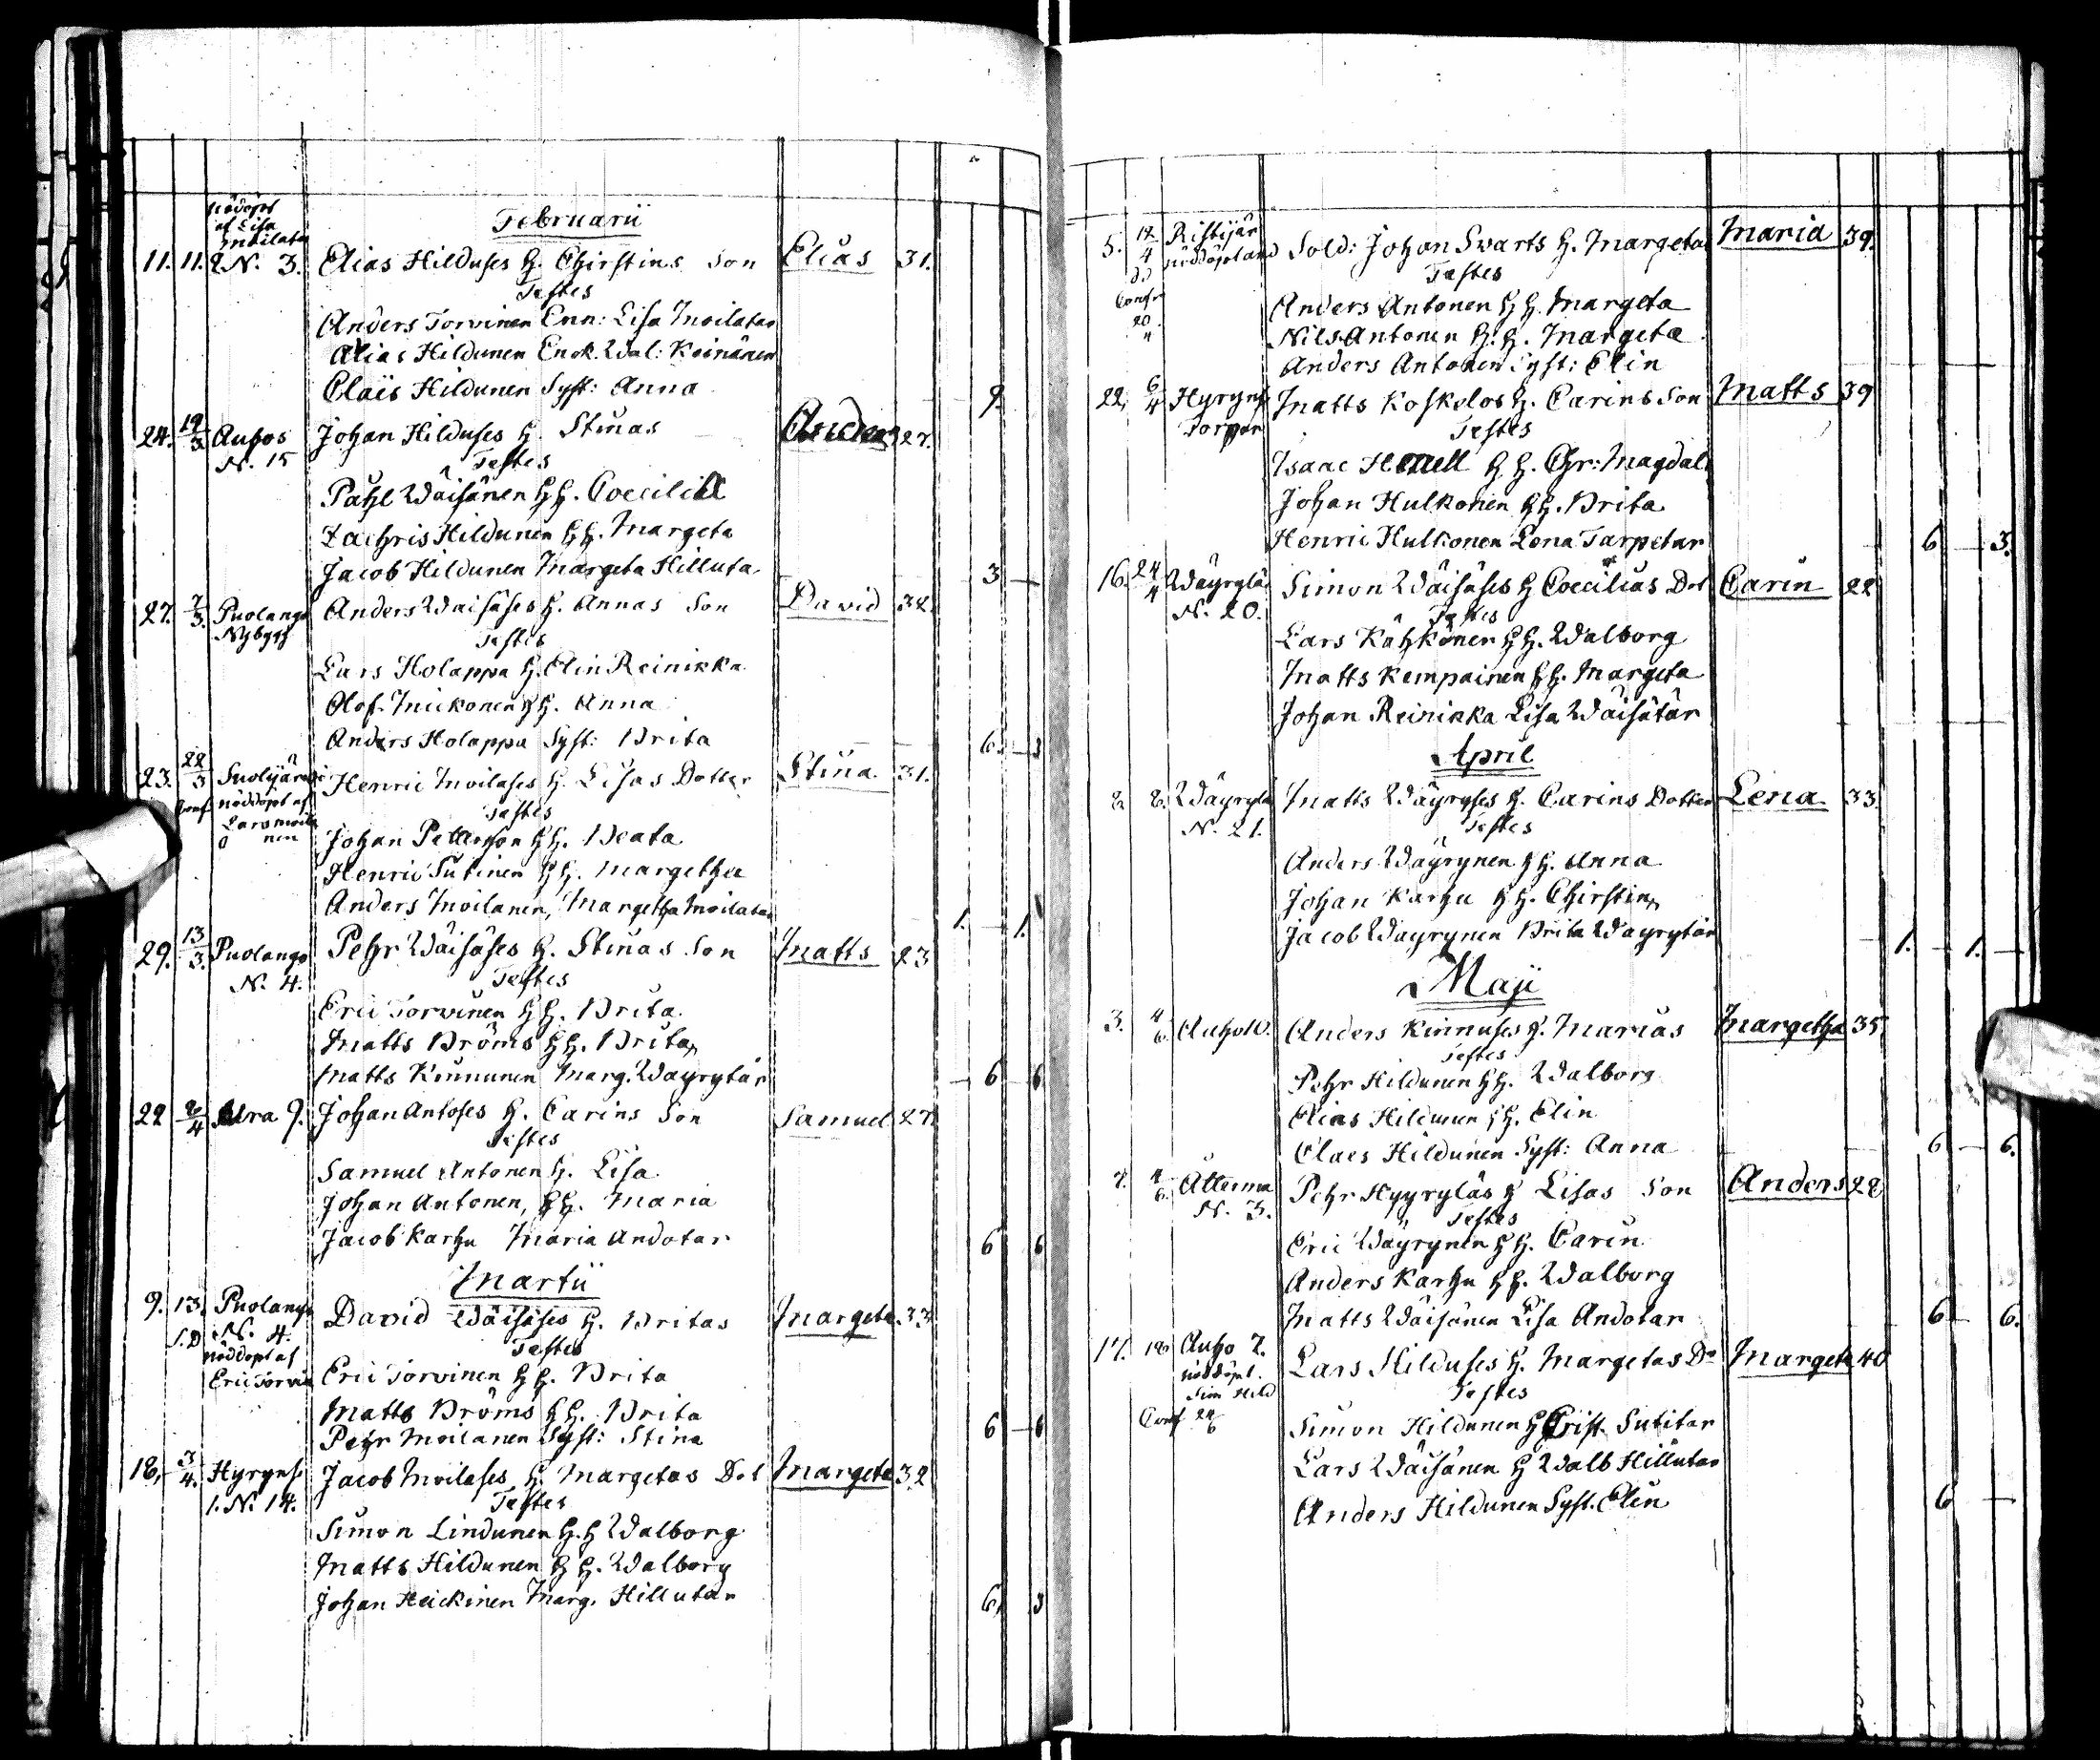 Februarii
nödöpt
af Lisa
Moilata
11. 11. N. 3. Elias Hilduses H. Chirstins Son Elias 31.
Testes
Anders Torvinen Enn: Lisa Moilatar
Elias Hildunen Enok. Wal: Keinänen
Claës Hildunen Syst: Anna 9.
24. 19/3 Auhos Johan Hilduses H. Stinas Anders 27.
N. 15 Testes
Påhl Wäisänen H H. Coecilia
Zachris Hildunen H H. Margeta
Jacob Hildunen Margeta Hilluta 3 —
27. 7/3. Puolango Anders Waisäses H. Annas Son David 34.
Nybygg Testes
Lars Holappa H. Elin Reinikka
Olof Mickonen H H. Anna
Anders Holappa Syst: Brita 6. — 3
23. 22/3 Suolijärvi Henric Moilases H. Lisas Dotter Stina 31.
Conf nöddöpt af Testes
Lars Moila
nen Johan Petterson H H. Beata
Henric Sutinen H H. Margetha
Anders Moilanen, Margetha Moilatar 1. — 1.
29. 13/3. Puolango Pehr Wäisäses H. Stinas Son Matts 23
N. 4. Testes
Eric Torvinen H H. Brita
Matts Bröms H H. Brita
Matts Kinnunen Marg. Wäyrytär — 6 — 6
22 2/4 Aura 9. Johan Antoses H. Carins Son Samuel 27
Testes
Samuel Antonen H. Lisa
Johan Antonen, H H. Maria
Jacob Karhu Maria Andotar 6 6
Martii
9. 13. Puolango David Wäisäses H. Britas Margeta 33
S.D N. 4. Testes
nöddopt af
Eric Torvin Eric Torvinen H H. Brita
Matts Bröms H H. Brita
Pehr Moilanen Syst: Stina 6 — 6
18, 3/4. Hyryns. Jacob Moilases H. Margetas Dot Margeta 32
1. N. 14. Testes
Simon Lindunen H. H Walborg
Matts Hildunen H H. Walborg
Johan Heickinen Marg. Hillutar 6, 3
5. 14/4 Ristijär Sold: Johan Svarts H. Margeta Maria 39.
nöddöpt Testes
Conf
20/4 Anders Antonen H H. Margeta
Nils Antonen H. H. Margeta
Anders Antonen Syst: Elin
22, 6/4 Hyryns Matts Koskelos H. Carins Son Matts 39
Torpar Testes
Isaac H H. Chr: Magdal.
Johan Hulkonen H H. Brita
Henric Hulkonen Lena Tarpetar 6 — 3.
16. 24/4 Wäyrylä Simon Wäisäses H Coecilias Dot Carin 22
N. 20. Testes
Lars Kähkönen H H. Walborg
Matts Kempainen H H. Margeta
Johan Reinikka Lisa Wäisätär
April
2. 2. Wäyrylä Matts Wäyryses H. Carins Dotter Lena 33.
N. 21. Testes
Anders Wäyrynen H H. Anna
Johan Karhu H H. Chirstin
Jacob Wayrynen Brita Wayrytär — 1. — 1. —
Maji
3. 4/6 Auho 10. Anders Kinnuses H. Marias Margetha 35,
Testes
Pehr Hildunen H H. Walborg
Elias Hildunen H H. Elin
Claes Hildunen Syst: Anna 6 — 6.
7. 4/6. Ätterma Pehr Hyyryläs H Lisas Son Anders 22
N. 3. Testes
Eric Wäyrynen H H. Carin
Anders Karhu H H. Walborg
Matts Wäisänen Lisa Andotar 6 — 6.
17. 18 Auho 7. Lars Hilduses H. Margetas Dr Margeta 40
nöddöpt. Testes
Sim Hild
Conf 24/6 Simon Hildunen H Crist. Sutitar
Lars Wäisänen H Walb Hillutar
Anders Hildunen Syst. Elin 6 —